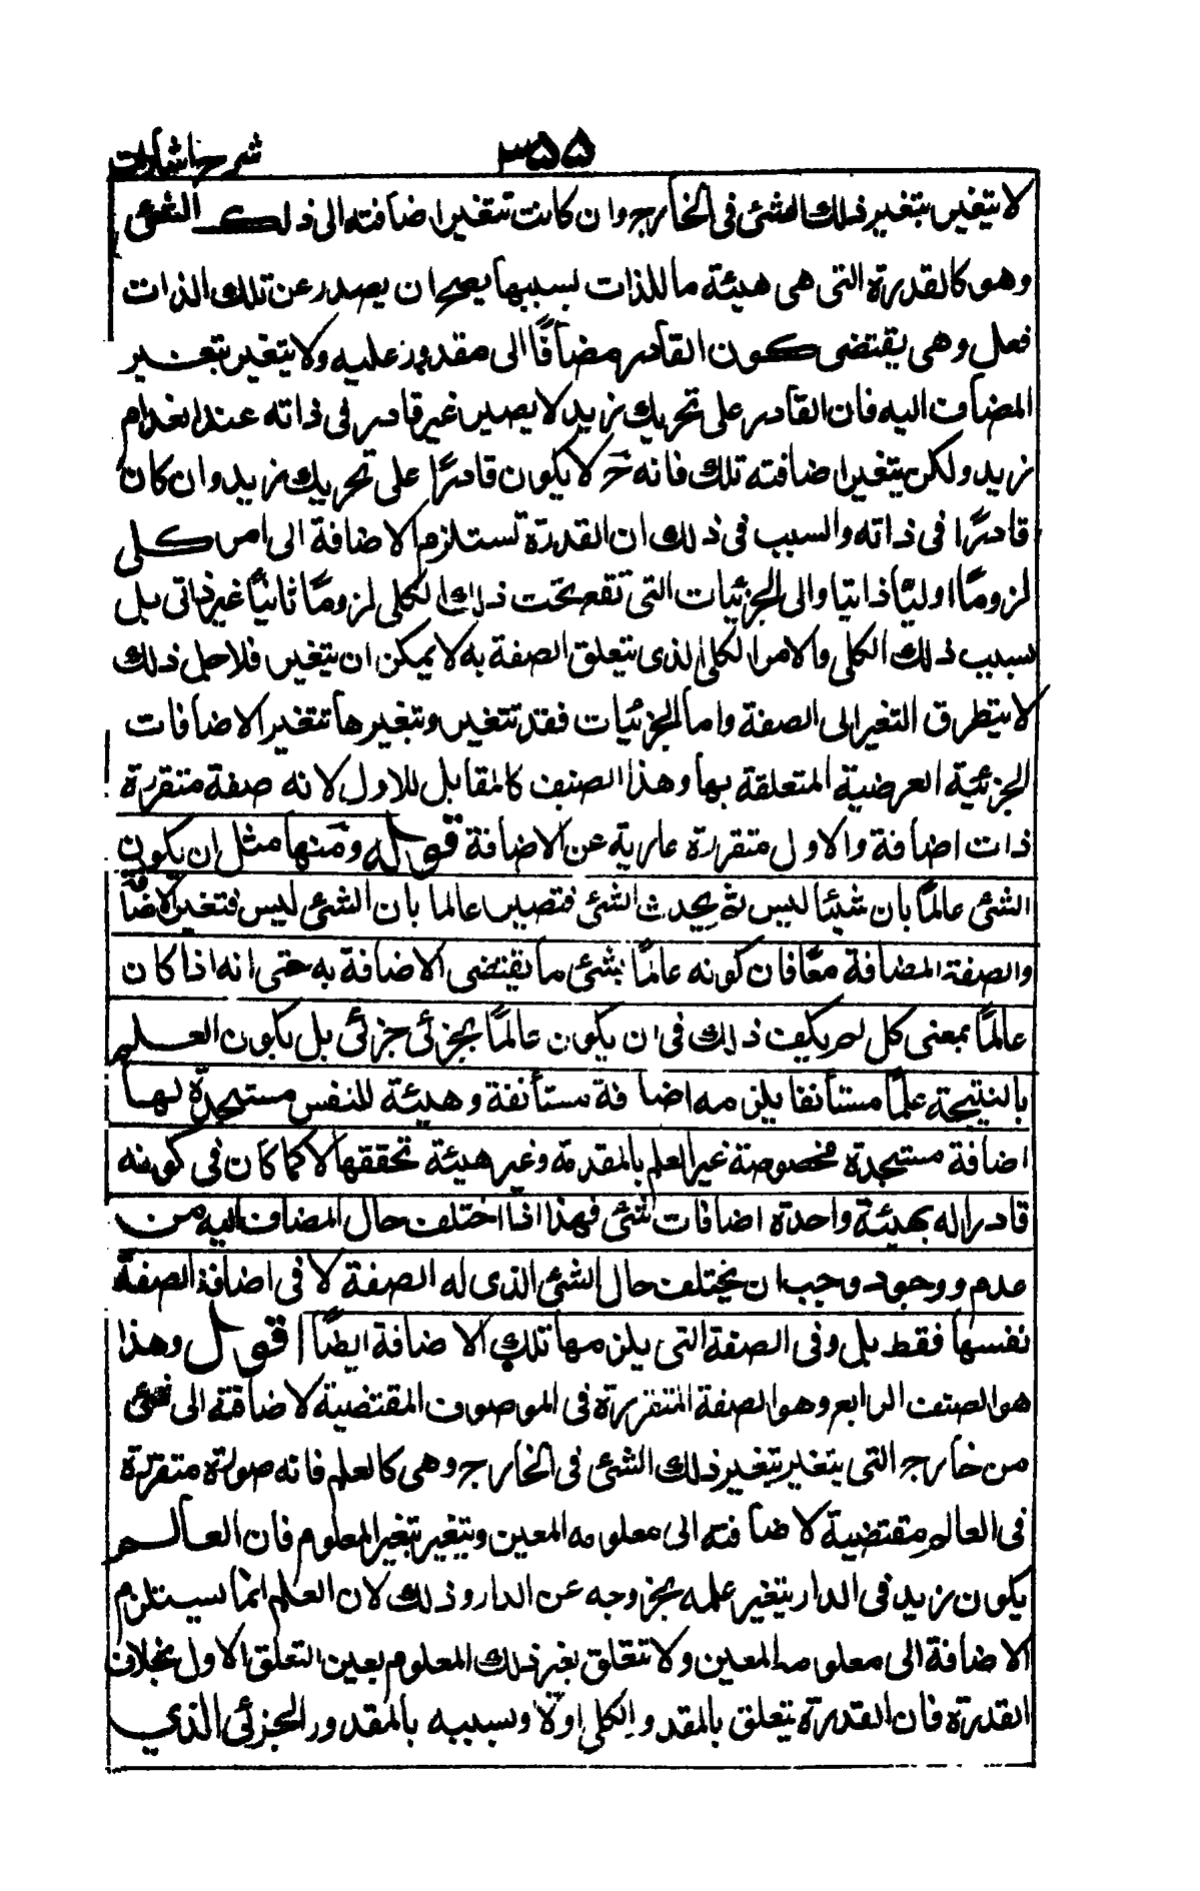 شرح اشارات ٣٥٥
لا يتغير بتغير ذلك الشئ فى الخارج وان كانت تتغير اضافته الى ذلك الشئ
وهو كالقدرة التى هى هيئة ما للذات بسببها يصح ان يصدر عن تلك الذات
فعل وهى يقتضى كون القادر مضافًا الى مقدور عليه ولا يتغير بتغير
المضاف اليه فان القادر على تحريك زيد لا يصير غير قادر فى ذاته عند انعدام
زيد ولكن يتغير اضافته تلك فانه ح لا يكون قادرًا على تحريك زيد وان كان
قادرًا فى ذاته والسبب فى ذلك ان القدرة تستلزم الاضافة الى امر كلى
لزومًا اوليًا ذاتيا والى الجزئيات التى تقع تحت ذلك الكلى لزومًا ثانيًا غير ذاتى بل
بسبب ذلك الكلى والامر الكلى الذى يتعلق الصفة به لا يمكن ان يتغير فلاجل ذلك
لا يتطرق التغير الى الصفة واما الجزئيات فقد تتغير وبتغيرها تتغير الاضافات
الجزئية العرضية المتعلقة بها وهذا الصنف كالمقابل للاول لانه صفة متقررة
ذات اضافة والاول متقررة عارية عن الاضافة قوله ومنها مثل ان يكون
الشئ عالمًا بان شيئا ليس ثم يحدث الشئ فتصير عالما بان الشئ ليس فتغير الاضافة
والصفة المضافة معًا فان كونه عالمًا بشئ ما يقتضى الاضافة به حتى انه اذا كان
عالمًا بمعنى كل لم يكف ذلك فى ان يكون عالمًا بجزئى جزئى بل يكون العلم
بالنتيجة علمًا مستأنفا يلزمه اضافة مستأنفة وهيئة للنفس مستجدة لها
اضافة مستجدة مخصوصة غير العلم بالمقدمة وغير هيئة تحققها لا كما كان فى كونه
قادرا له بهيئة واحدة اضافات شئ فهذا اذا اختلف حال المضاف اليه من
عدم ووجود وجب ان يختلف حال الشئ الذى له الصفة لا فى اضافة الصفة
نفسها فقط بل وفى الصفة التى يلزمها تلك الاضافة ايضًا اقول وهذا
هو الصنف الرابع وهو الصفة المتقررة فى الموصوف المقتضية لاضافته الى شئ
من خارج التى يتغير بتغير ذلك الشئ فى الخارج وهى كالعلم فانه صورة متقررة
فى العالم مقتضية لاضافته الى معلومه المعين ويتغير بتغير المعلوم فان العالم
يكون زيد فى الدار يتغير علمه بخروجه عن الدار وذلك لان العلم انما يستلزم
الاضافة الى معلومه المعين ولا تتعلق بغير ذلك المعلوم بعين التعلق الاول بخلاف
القدرة فان القدرة يتعلق بالمقدور الكلى اوّلا وبسببه بالمقدور الجزئى الذي